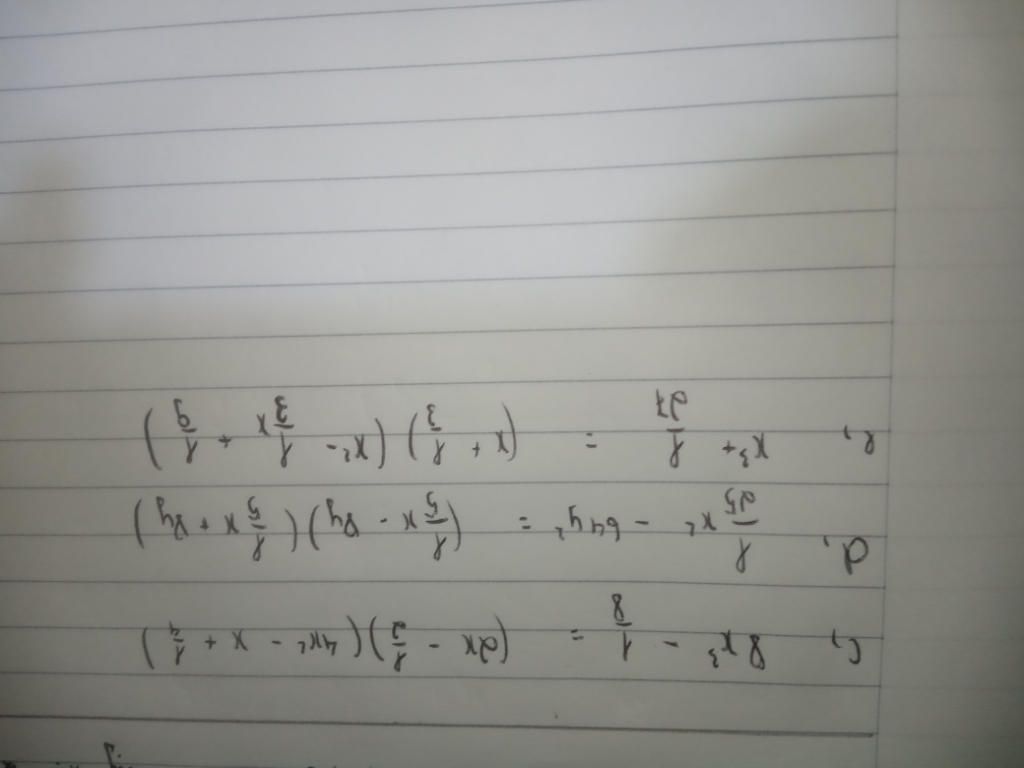 c, 8x³ - 1/8 = (2x - 1/2)(4x² - x + 1/4)
d, 1/25 x² - 64y² = (1/5 x - 8y)(1/5 x + 8y)
e, x³ + 1/27 = (x + 1/3)(x² - 1/3 x + 1/9)